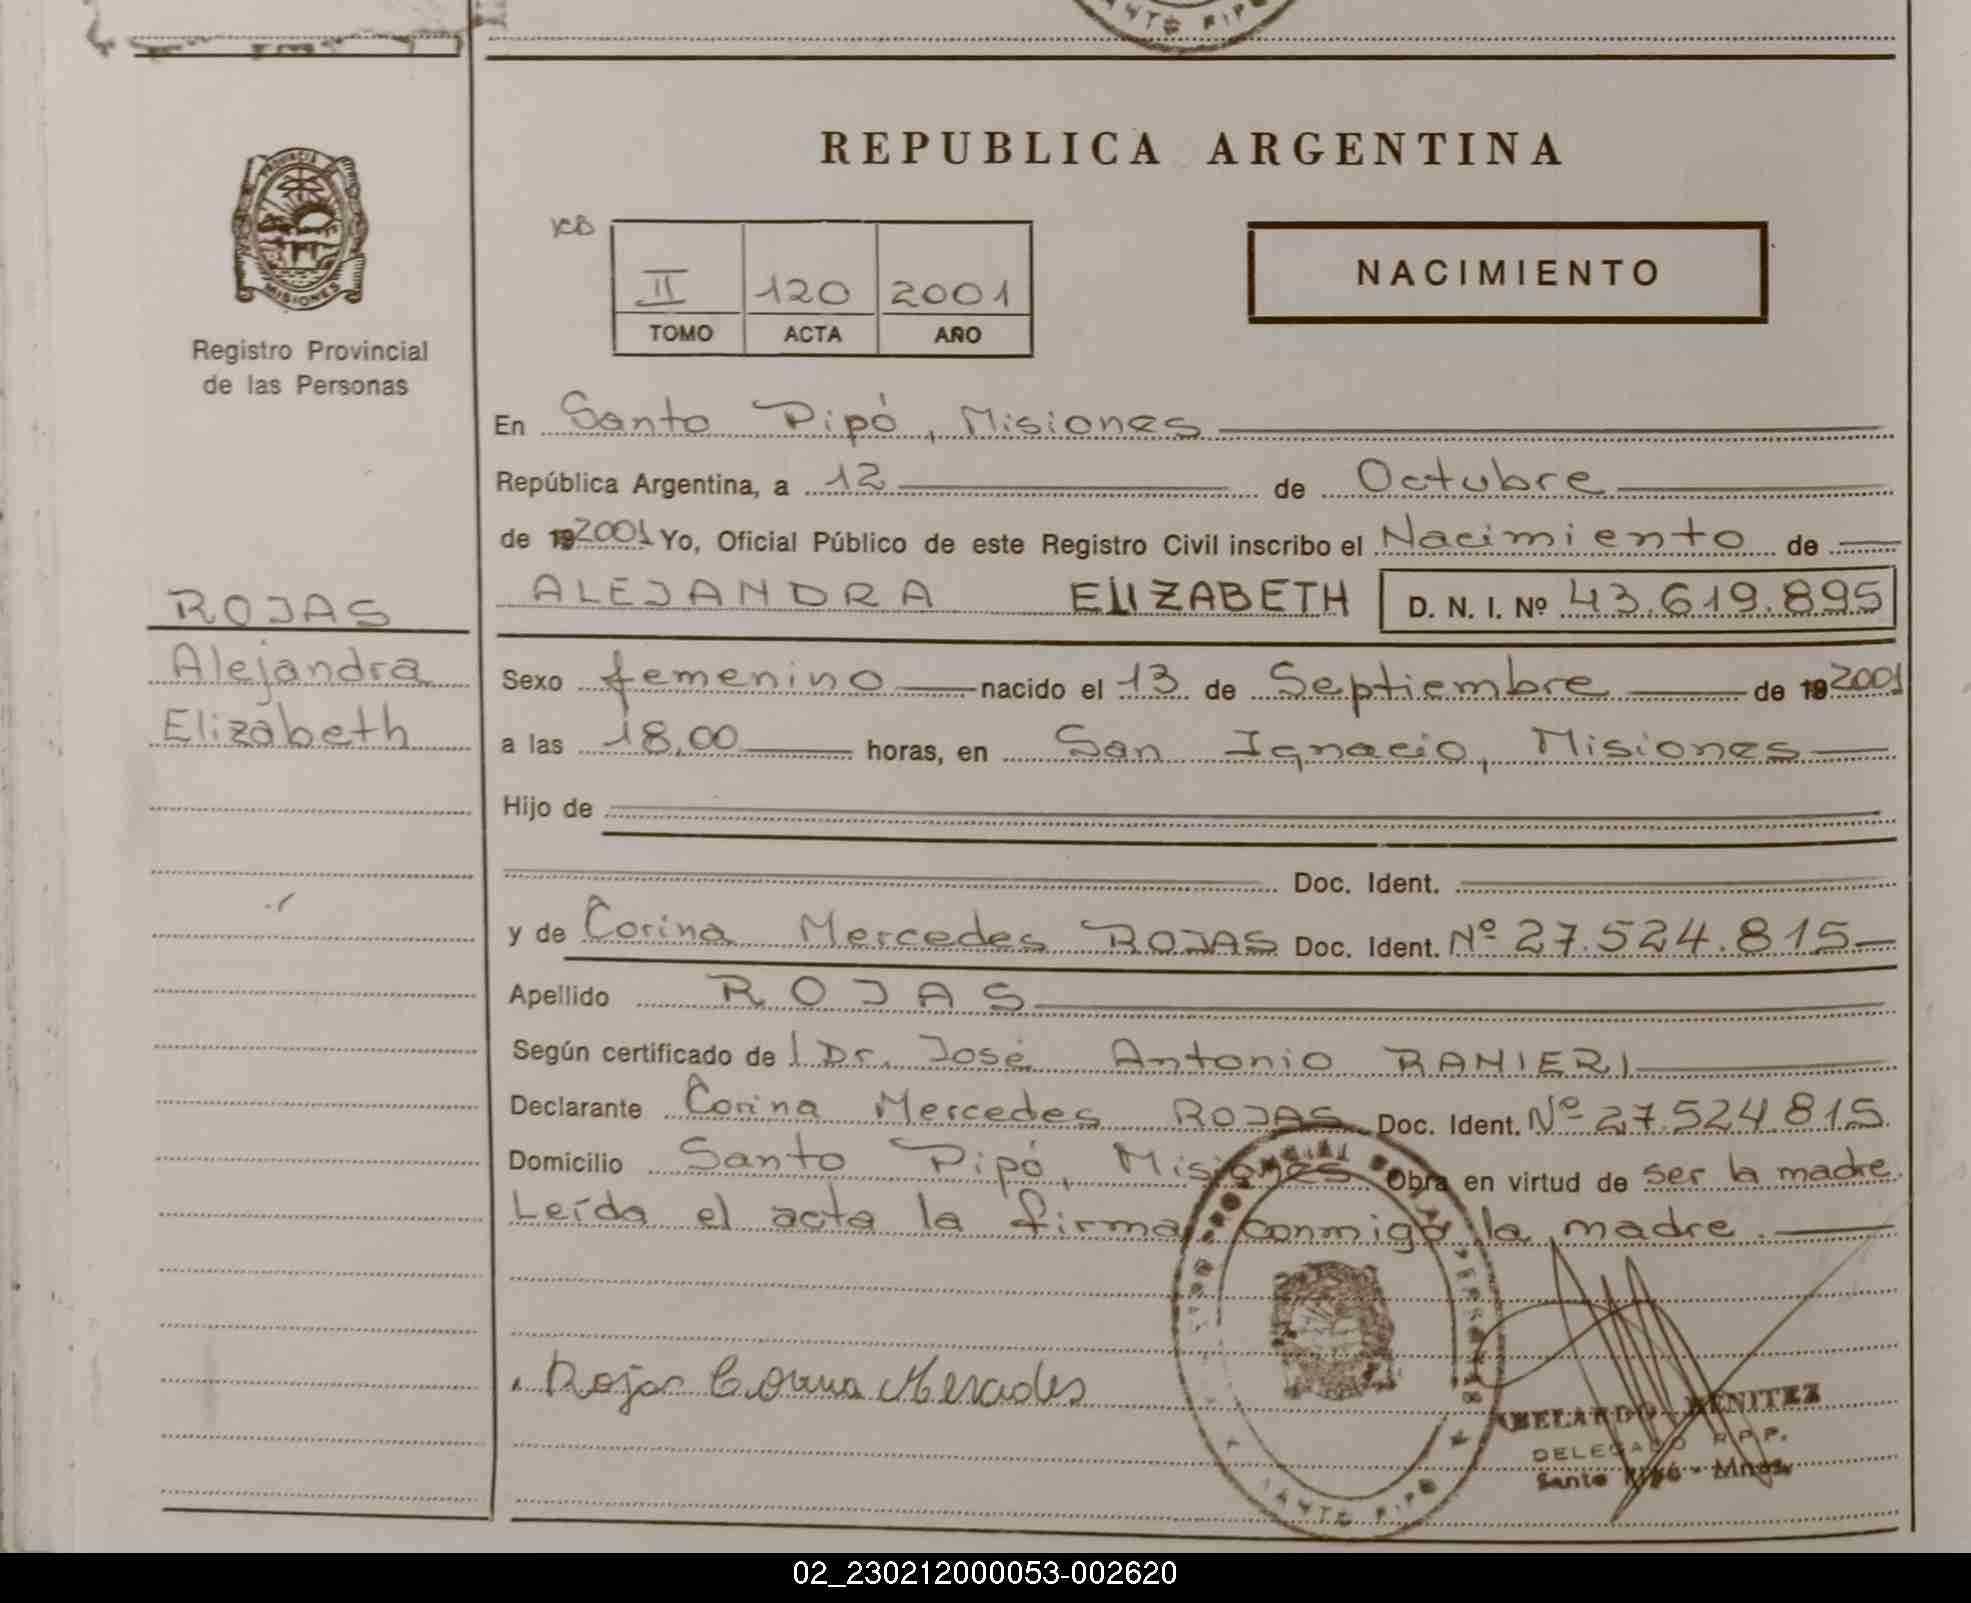 SANTO PIPO
PROVINCIA DE
MISIONES
Registro Provincial
de las Personas
ROJAS
Alejandra
Elizabeth
REPUBLICA ARGENTINA
II 120 2001
TOMO ACTA AÑO
NACIMIENTO
En Santo Pipó, Misiones
República Argentina, a 12 de Octubre
de 19 2001 Yo, Oficial Público de este Registro Civil inscribo el Nacimiento de
ALEJANDRA ELIZABETH D. N. I. Nº 43.619.895
Sexo femenino nacido el 13 de Septiembre de 19 2001
a las 18,00 horas, en San Ignacio, Misiones
Hijo de
Doc. Ident.
y de Corina Mercedes ROJAS Doc. Ident. Nº 27.524.815
Apellido ROJAS
Según certificado de Dr. José Antonio RANIERI
Declarante Corina Mercedes ROJAS Doc. Ident. Nº 27.524.815
Domicilio Santo Pipó, Misiones Obra en virtud de ser la madre
Leída el acta la firma conmigo la madre.
Rojas Corina Mercedes
ABELARDO BENITEZ
DELEGADO R.P.P.
Santo Pipó - Mnes.
SANTO PIPO
02_230212000053-002620